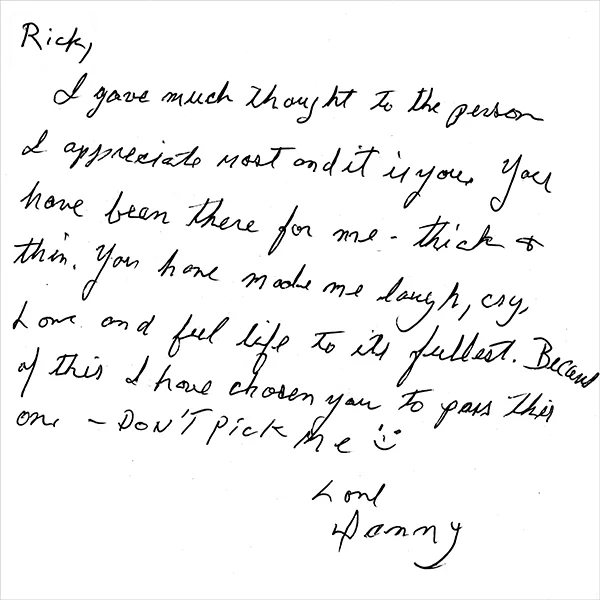 Rick,
I gave much thought to the person
I appreciate most and it is you. You
have been there for me - thick &
thin. You have made me laugh, cry,
Love and feel life to its fullest. Because
of this I have chosen you to pass this
on. - DON'T PICK Me :)
Love
Danny